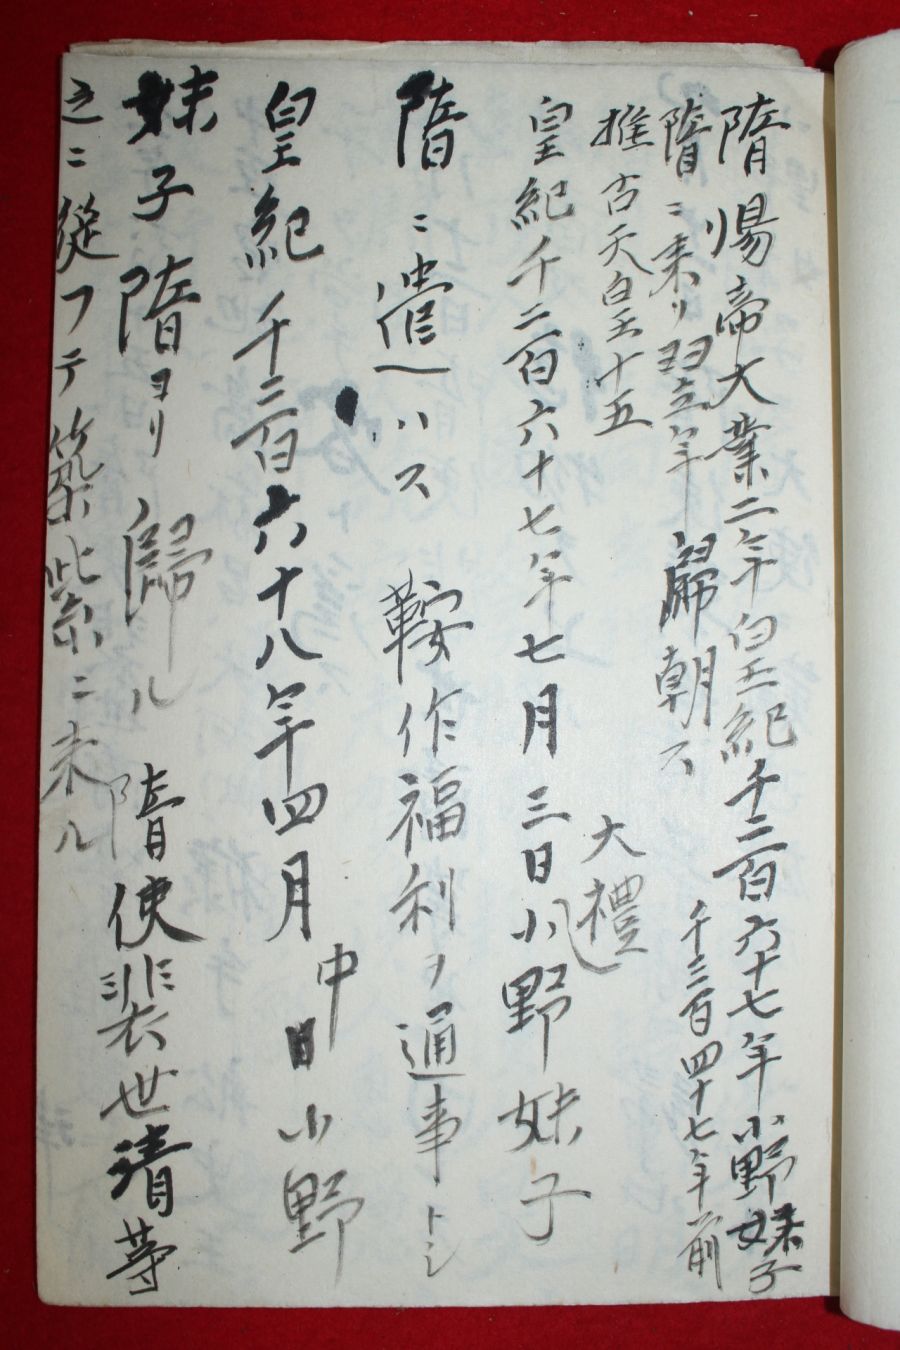 隋煬帝大業二年皇紀千二百六十七年小野妹子
隋ニ来リ翌年歸朝ス 千三百四十七年前
推古天皇十五 大禮
皇紀千二百六十七年七月三日小野妹子
隋ニ遣ハス 鞍作福利ヲ通事トシ
皇紀千二百六十八年四月 中日小野
妹子隋ヨリ歸ル 隋使裴世清等
之ニ從フテ筑紫ニ来ル